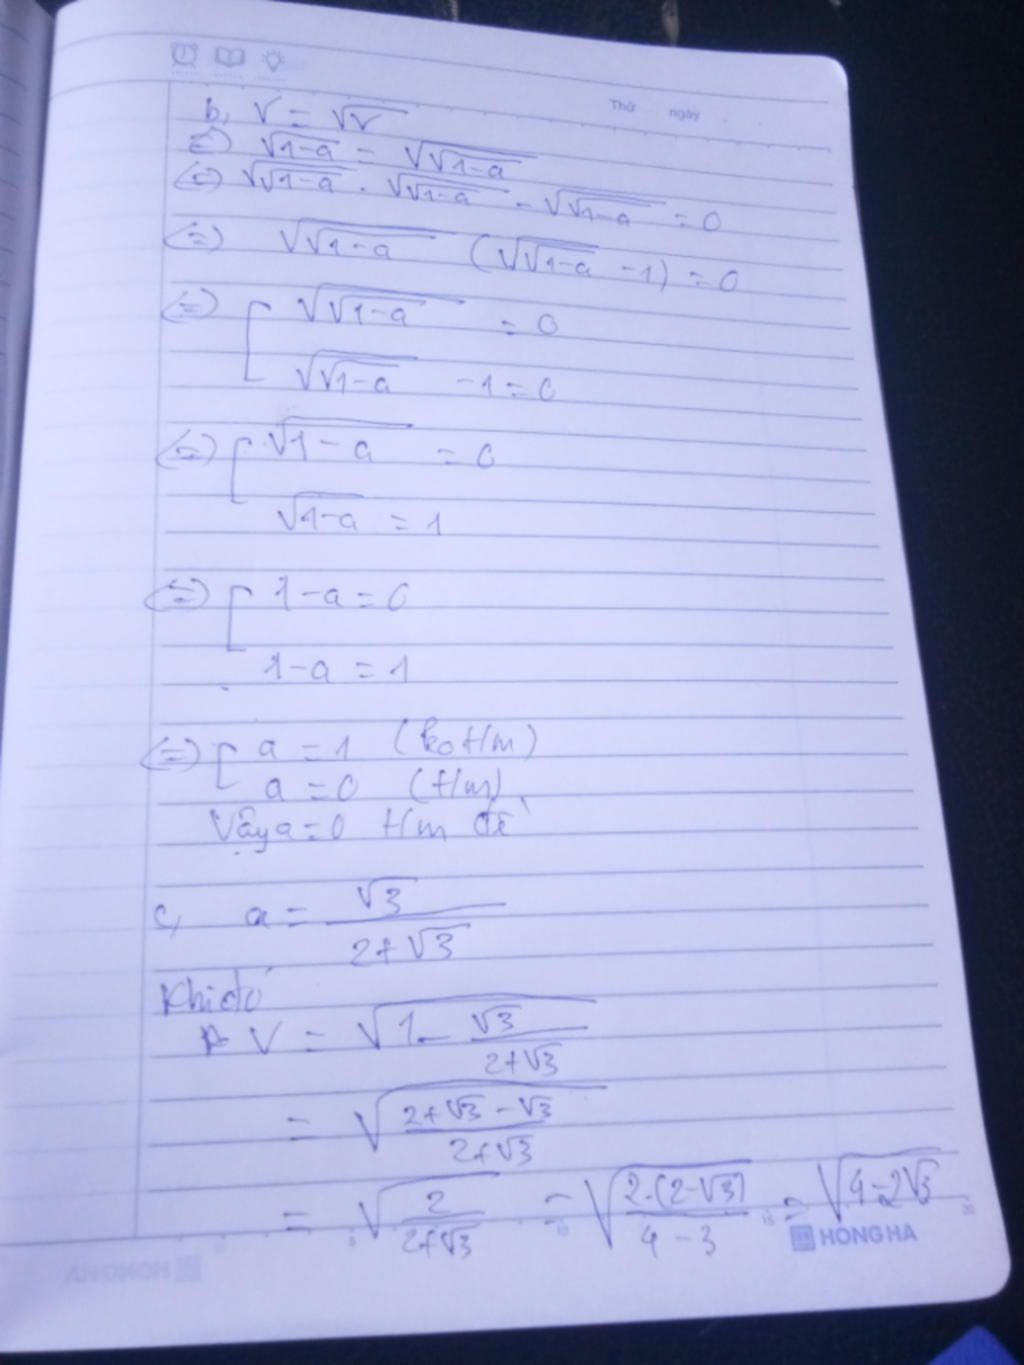 Thứ ngày
b, V = √V
(=) √1-a = √√1-a
(=) √√1-a . √√1-a - √√1-a = 0
(=) √√1-a (√√1-a - 1) = 0
(=) [ √√1-a = 0
√√1-a - 1 = 0
(=) [ √1-a = 0
√1-a = 1
(=) [ 1-a = 0
1-a = 1
(=) [ a = 1 (ko t/m)
a = 0 (t/m)
Vậy a = 0 t/m đề
c, a = √3 / 2+√3
Khi đó
V = √1 - √3 / 2+√3
= √2+√3 - √3 / 2+√3
= √2 / 2+√3 = √2.(2-√3) / 4-3 = √4-2√3
HONG HA